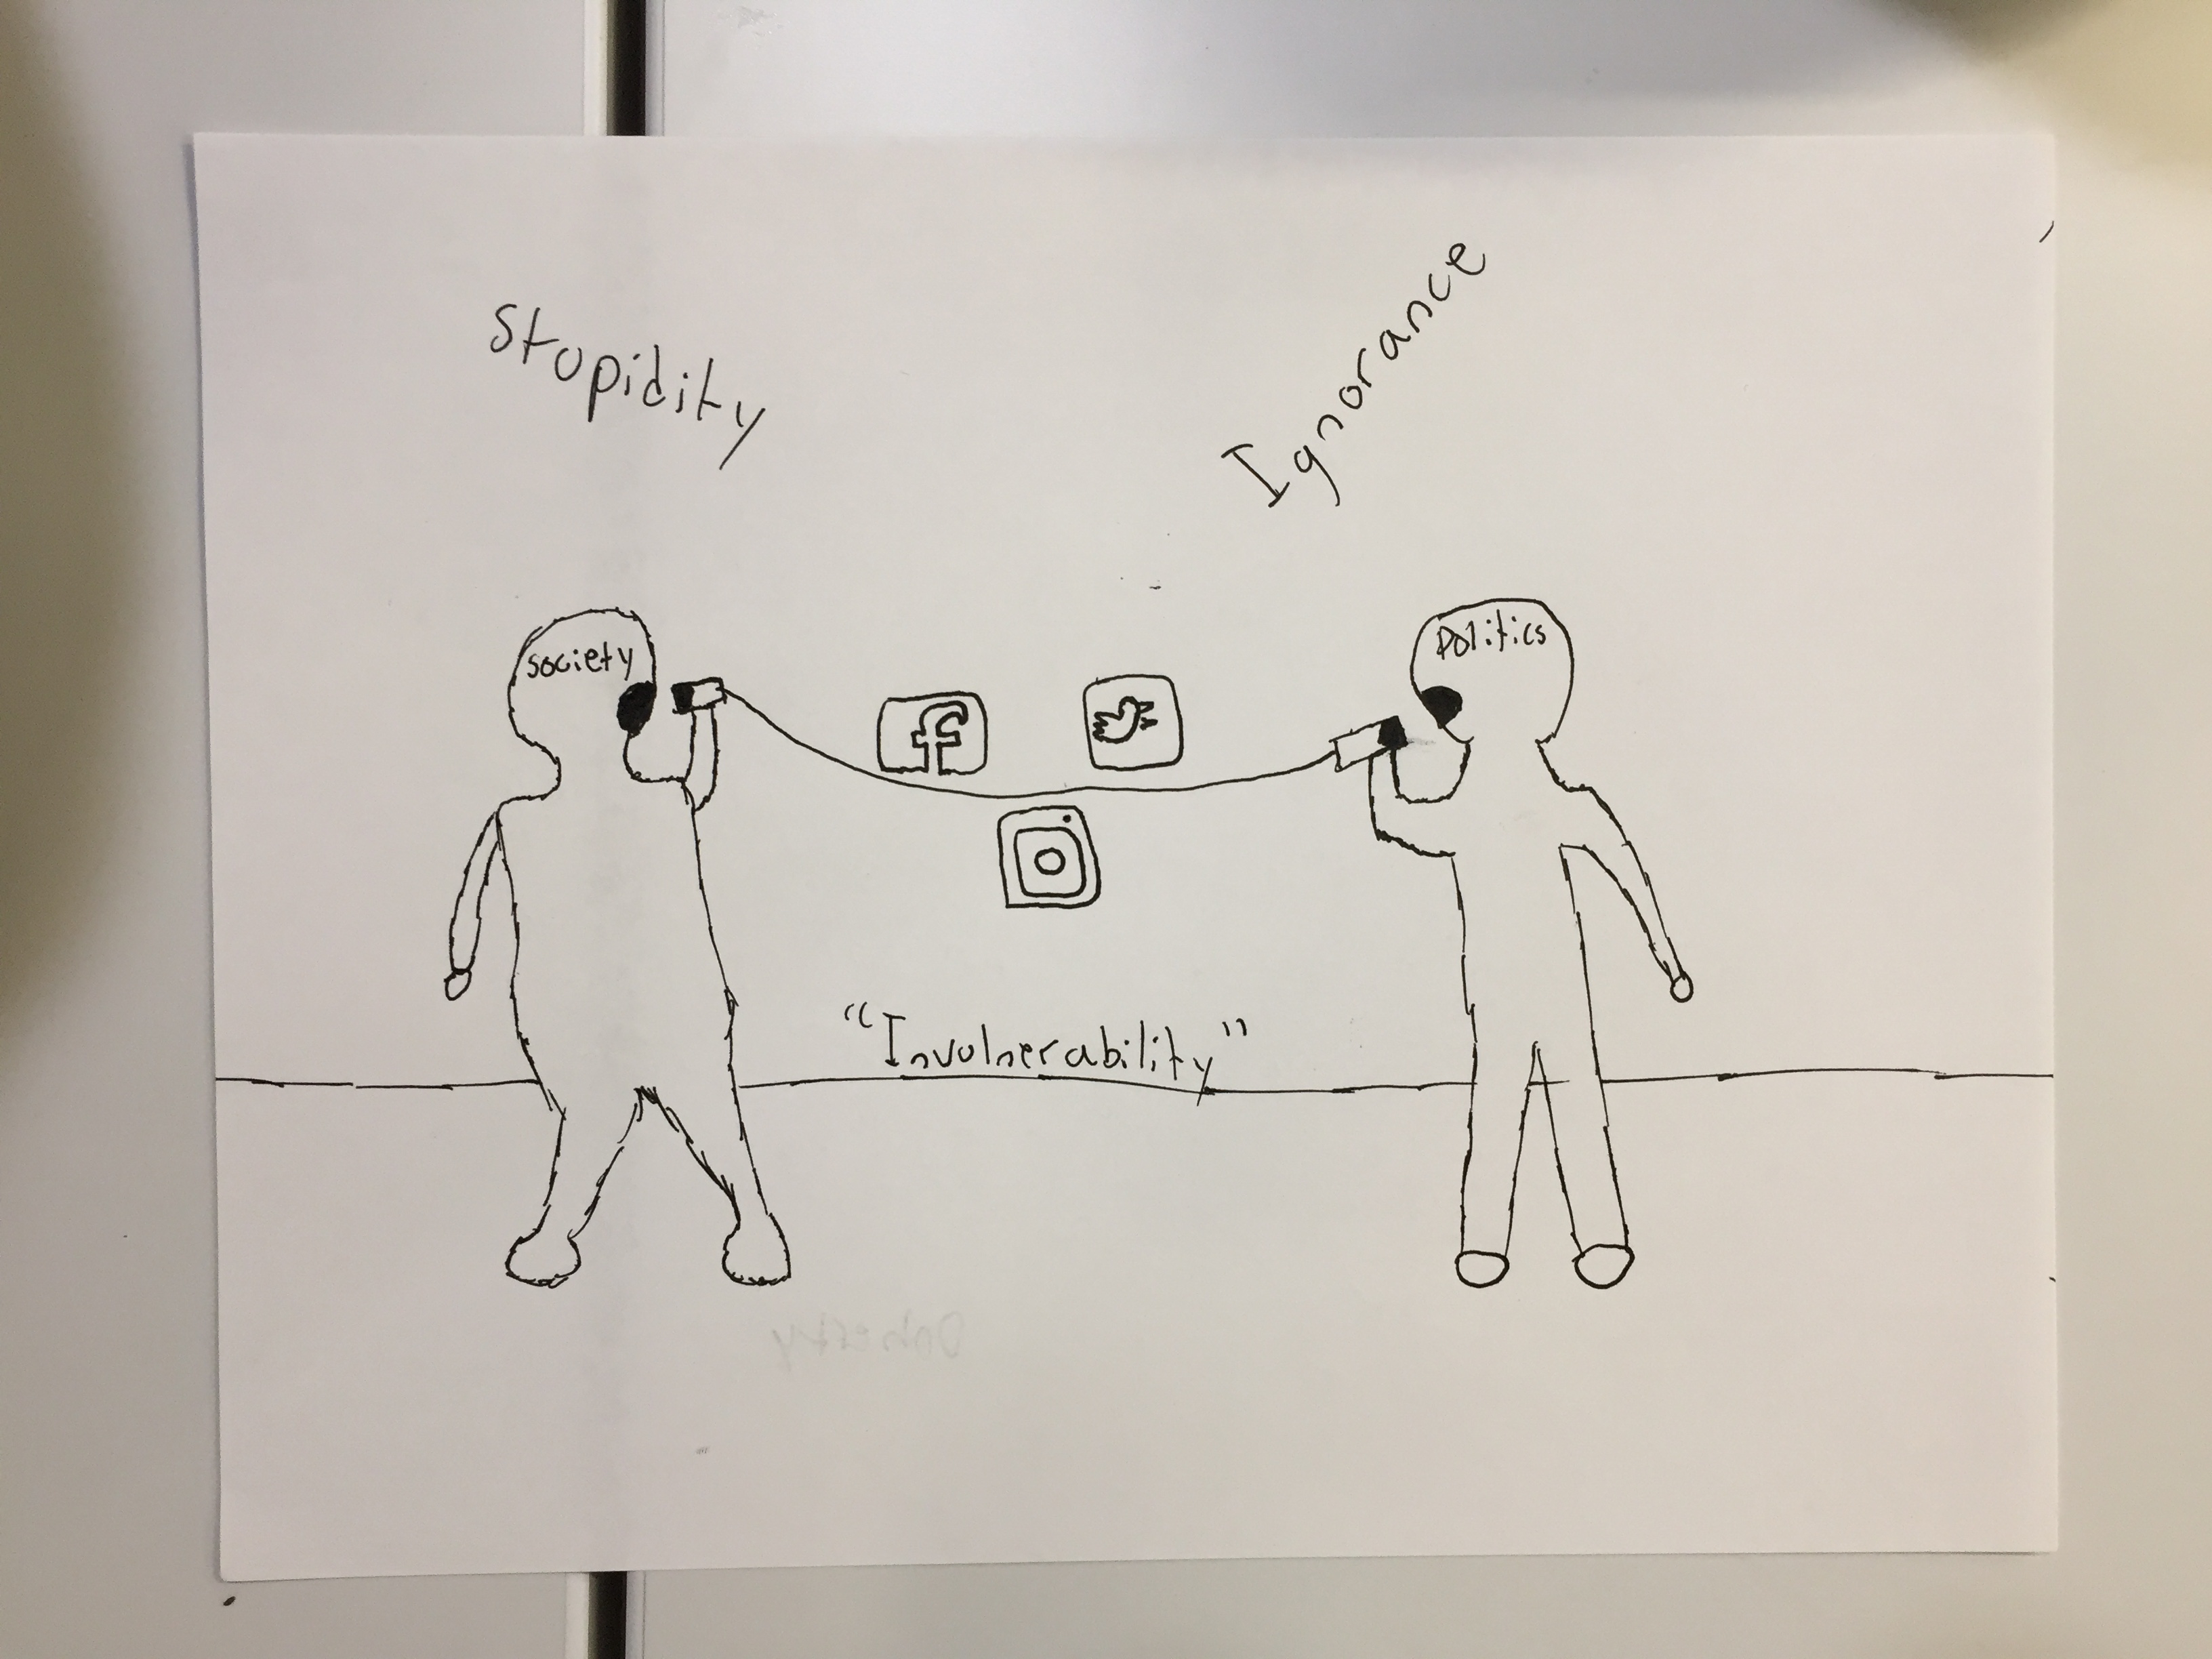 Stupidity
Ignorance
society
politics
f
"Invulnerability"